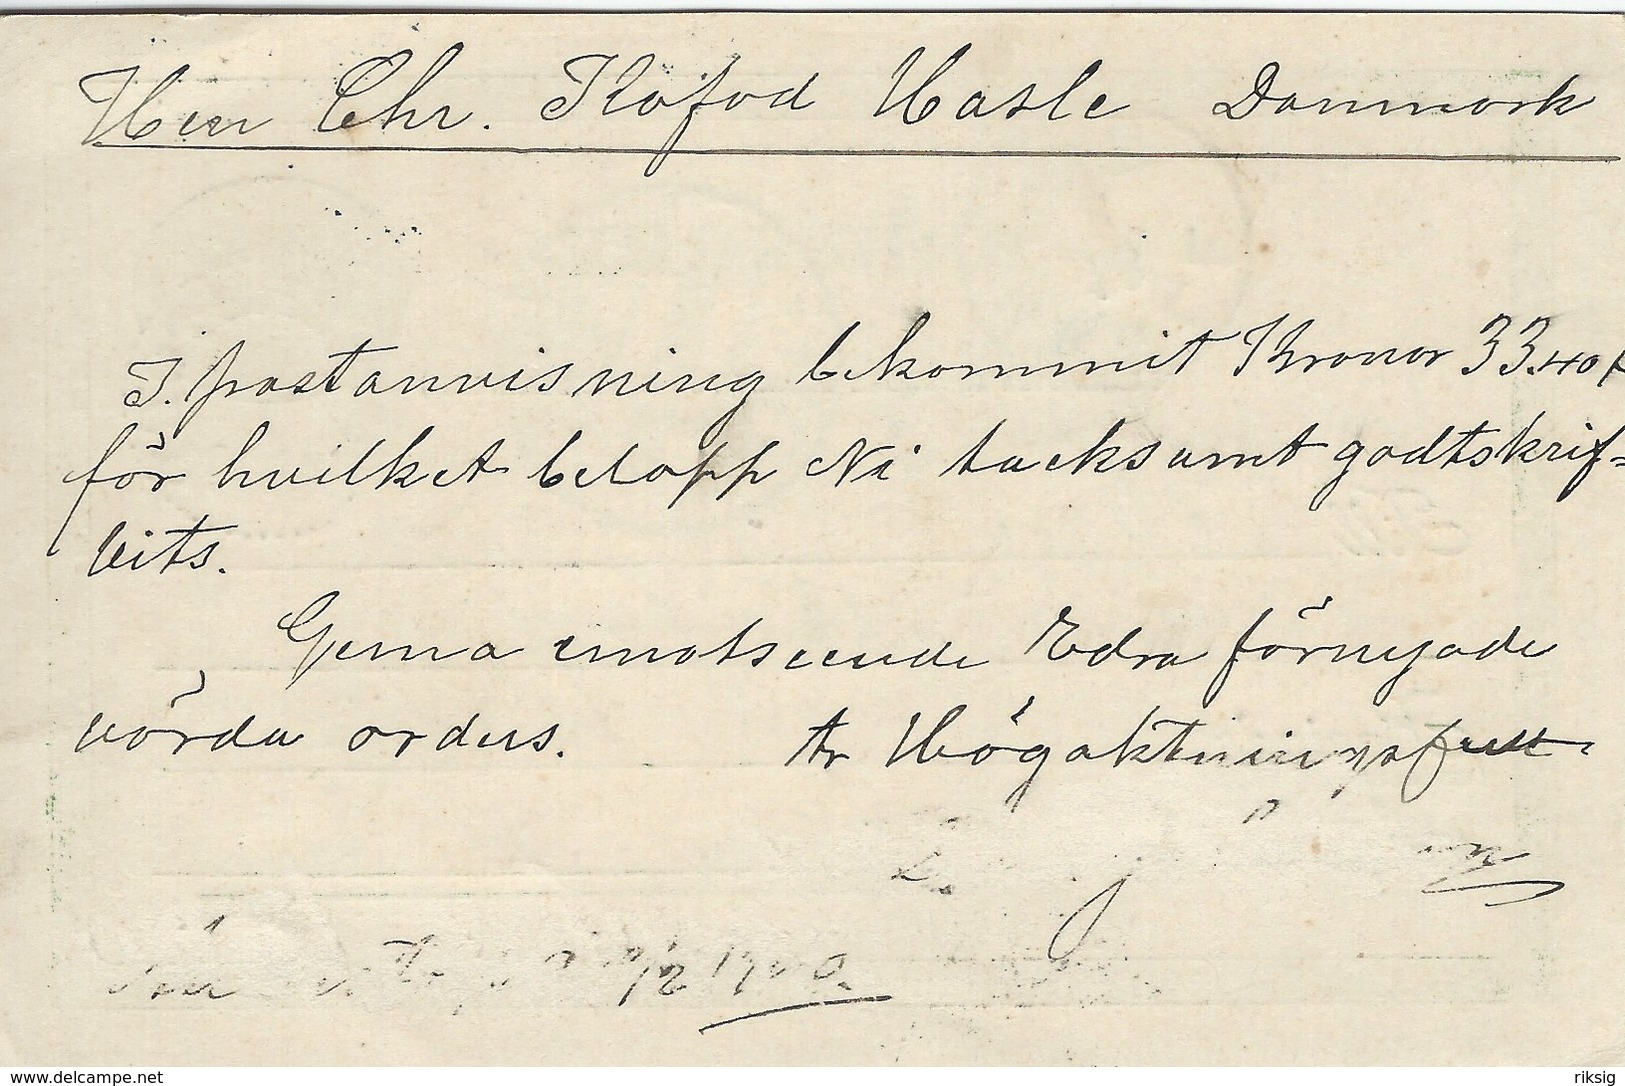 Herr Chr. Kofod Hasle Danmark
I. postanvisning bekommit Kronor 33.40
för hvilket belopp Ni tacksamt godtskrif=
vits.
Gerna emotseende Edra förnyade
värda orders.
Högaktningsfull
www.delcampe.net
riksig